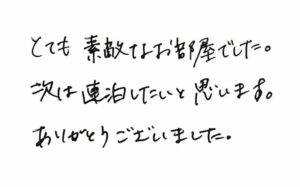 とても素敵なお部屋でした。
次は連泊したいと思います。
ありがとうございました。